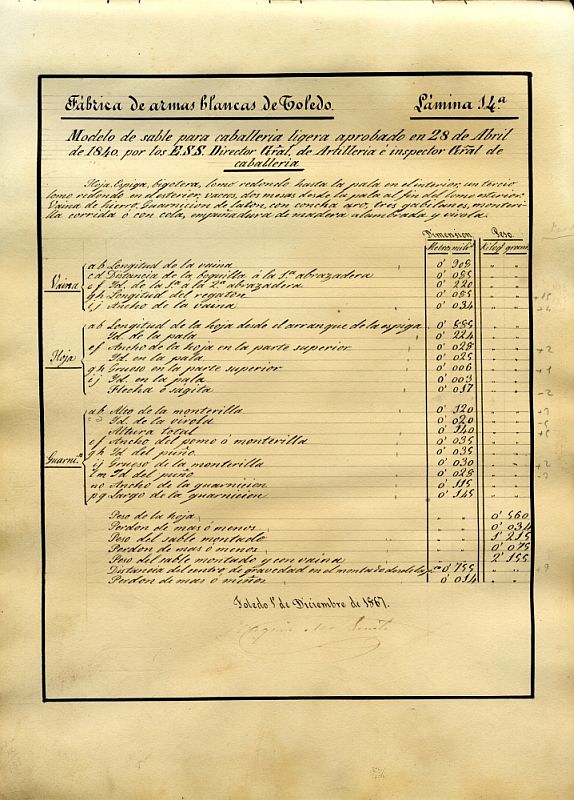 Fábrica de armas blancas de Toledo. Lámina 14.a
Modelo de sable para caballeria ligera aprobado en 28 de Abril
de 1840, por los E.S.S. Director Gral. de Artilleria é inspector Gral de
caballeria
Hoja. Espiga, bigotera, lomo redondo hasta la pala en el interior, un tercio
lomo redondo en el esterior, vaceos, dos mesas desde la pala al fin del lomo esterior.
Vaina de hierro. Guarnicion de laton, con concha, aro, tres gabilanes, monteri-
lla corrida ó con cola, empuñadura de madera alambrada y virola.
Dimension Peso
Metros mil.s Kilogs grams.
Vaina
a b Longitud de la vaina 0' 908 " "
c d Distancia de la boquilla á la 1.a abrazadera 0' 085 " "
e f Id. de la 1.a á la 2.a abrazadera 0' 220 " "
g h Longitud del regaton 0' 085 " "
i j Ancho de la vaina 0' 034 " "
Hoja
a b Longitud de la hoja desde el arranque de la espiga 0' 885 " "
Id. de la pala 0' 224 " "
e f Ancho de la hoja en la parte superior 0' 028 " "
Id. en la pala 0' 025 " "
g h Grueso en la parte superior 0' 006 " "
i j Id. en la pala 0' 003 " "
Flecha ó sagita 0' 017 " "
Guarni.n
a b Alto de la monterilla 0' 120 " "
Id. de la virola 0' 020 " "
Altura total 0' 140 " "
e f Ancho del pomo ó monterilla 0' 035 " "
g h Id. del puño 0' 035 " "
i j Grueso de la monterilla 0' 030 " "
l m Id del puño 0' 028 " "
n o Ancho de la guarnicion 0' 115 " "
p q Largo de la guarnicion 0' 145 " "
Peso de la hoja " " 0' 560
Perdon de mas ó menos " " 0' 034
Peso del sable montado " " 1' 215
Perdon de mas ó menos " " 0' 075
Peso del sable montado y con vaina " " 2' 155
Distancia del centro de gravedad en el montado desde la 0' 755 " "
Perdon de mas ó menos 0' 014 " "
Toledo 1.º de Diciembre de 1867.